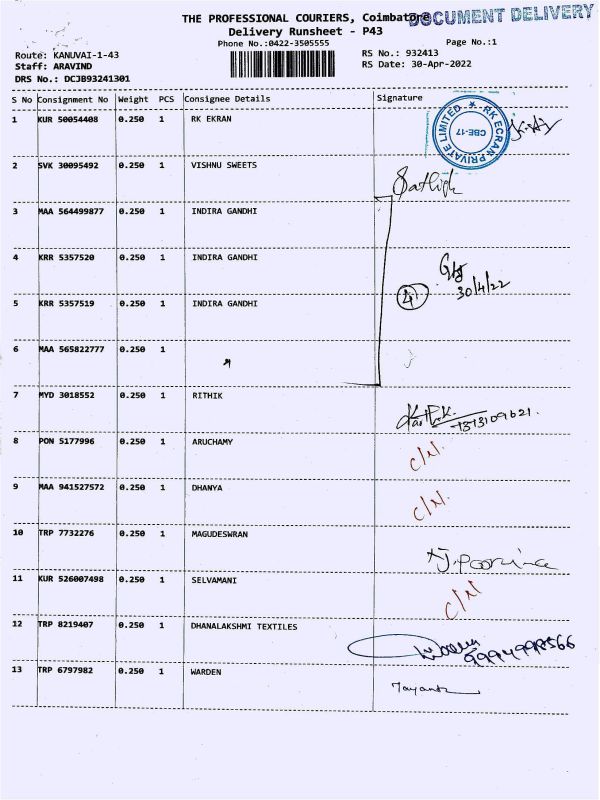 THE PROFESSIONAL COURIERS, Coimbatore
DOCUMENT DELIVERY
Delivery Runsheet - P43
Phone No.:0422-3505555
Page No.:1
Route: KANUVAI-1-43
RS No.: 932413
Staff: ARAVIND
RS Date: 30-Apr-2022
DRS No.: DCJB93241301
S No Consignment No Weight PCS Consignee Details Signature
1 KUR 50054408 0.250 1 RK EKRAN
RK ECRAN PRIVATE LIMITED ★
CBE-17
2 SVK 30095492 0.250 1 VISHNU SWEETS
Sathish
3 MAA 564499877 0.250 1 INDIRA GANDHI
4 KRR 5357520 0.250 1 INDIRA GANDHI
4
30/4/22
5 KRR 5357519 0.250 1 INDIRA GANDHI
6 MAA 565822777 0.250 1
7 MYD 3018552 0.250 1 RITHIK
8 PON 5177996 0.250 1 ARUCHAMY
C/N.
9 MAA 941527572 0.250 1 DHANYA
C/N.
10 TRP 7732276 0.250 1 MAGUDESWRAN
11 KUR 526007498 0.250 1 SELVAMANI
C/N
12 TRP 8219407 0.250 1 DHANALAKSHMI TEXTILES
13 TRP 6797982 0.250 1 WARDEN